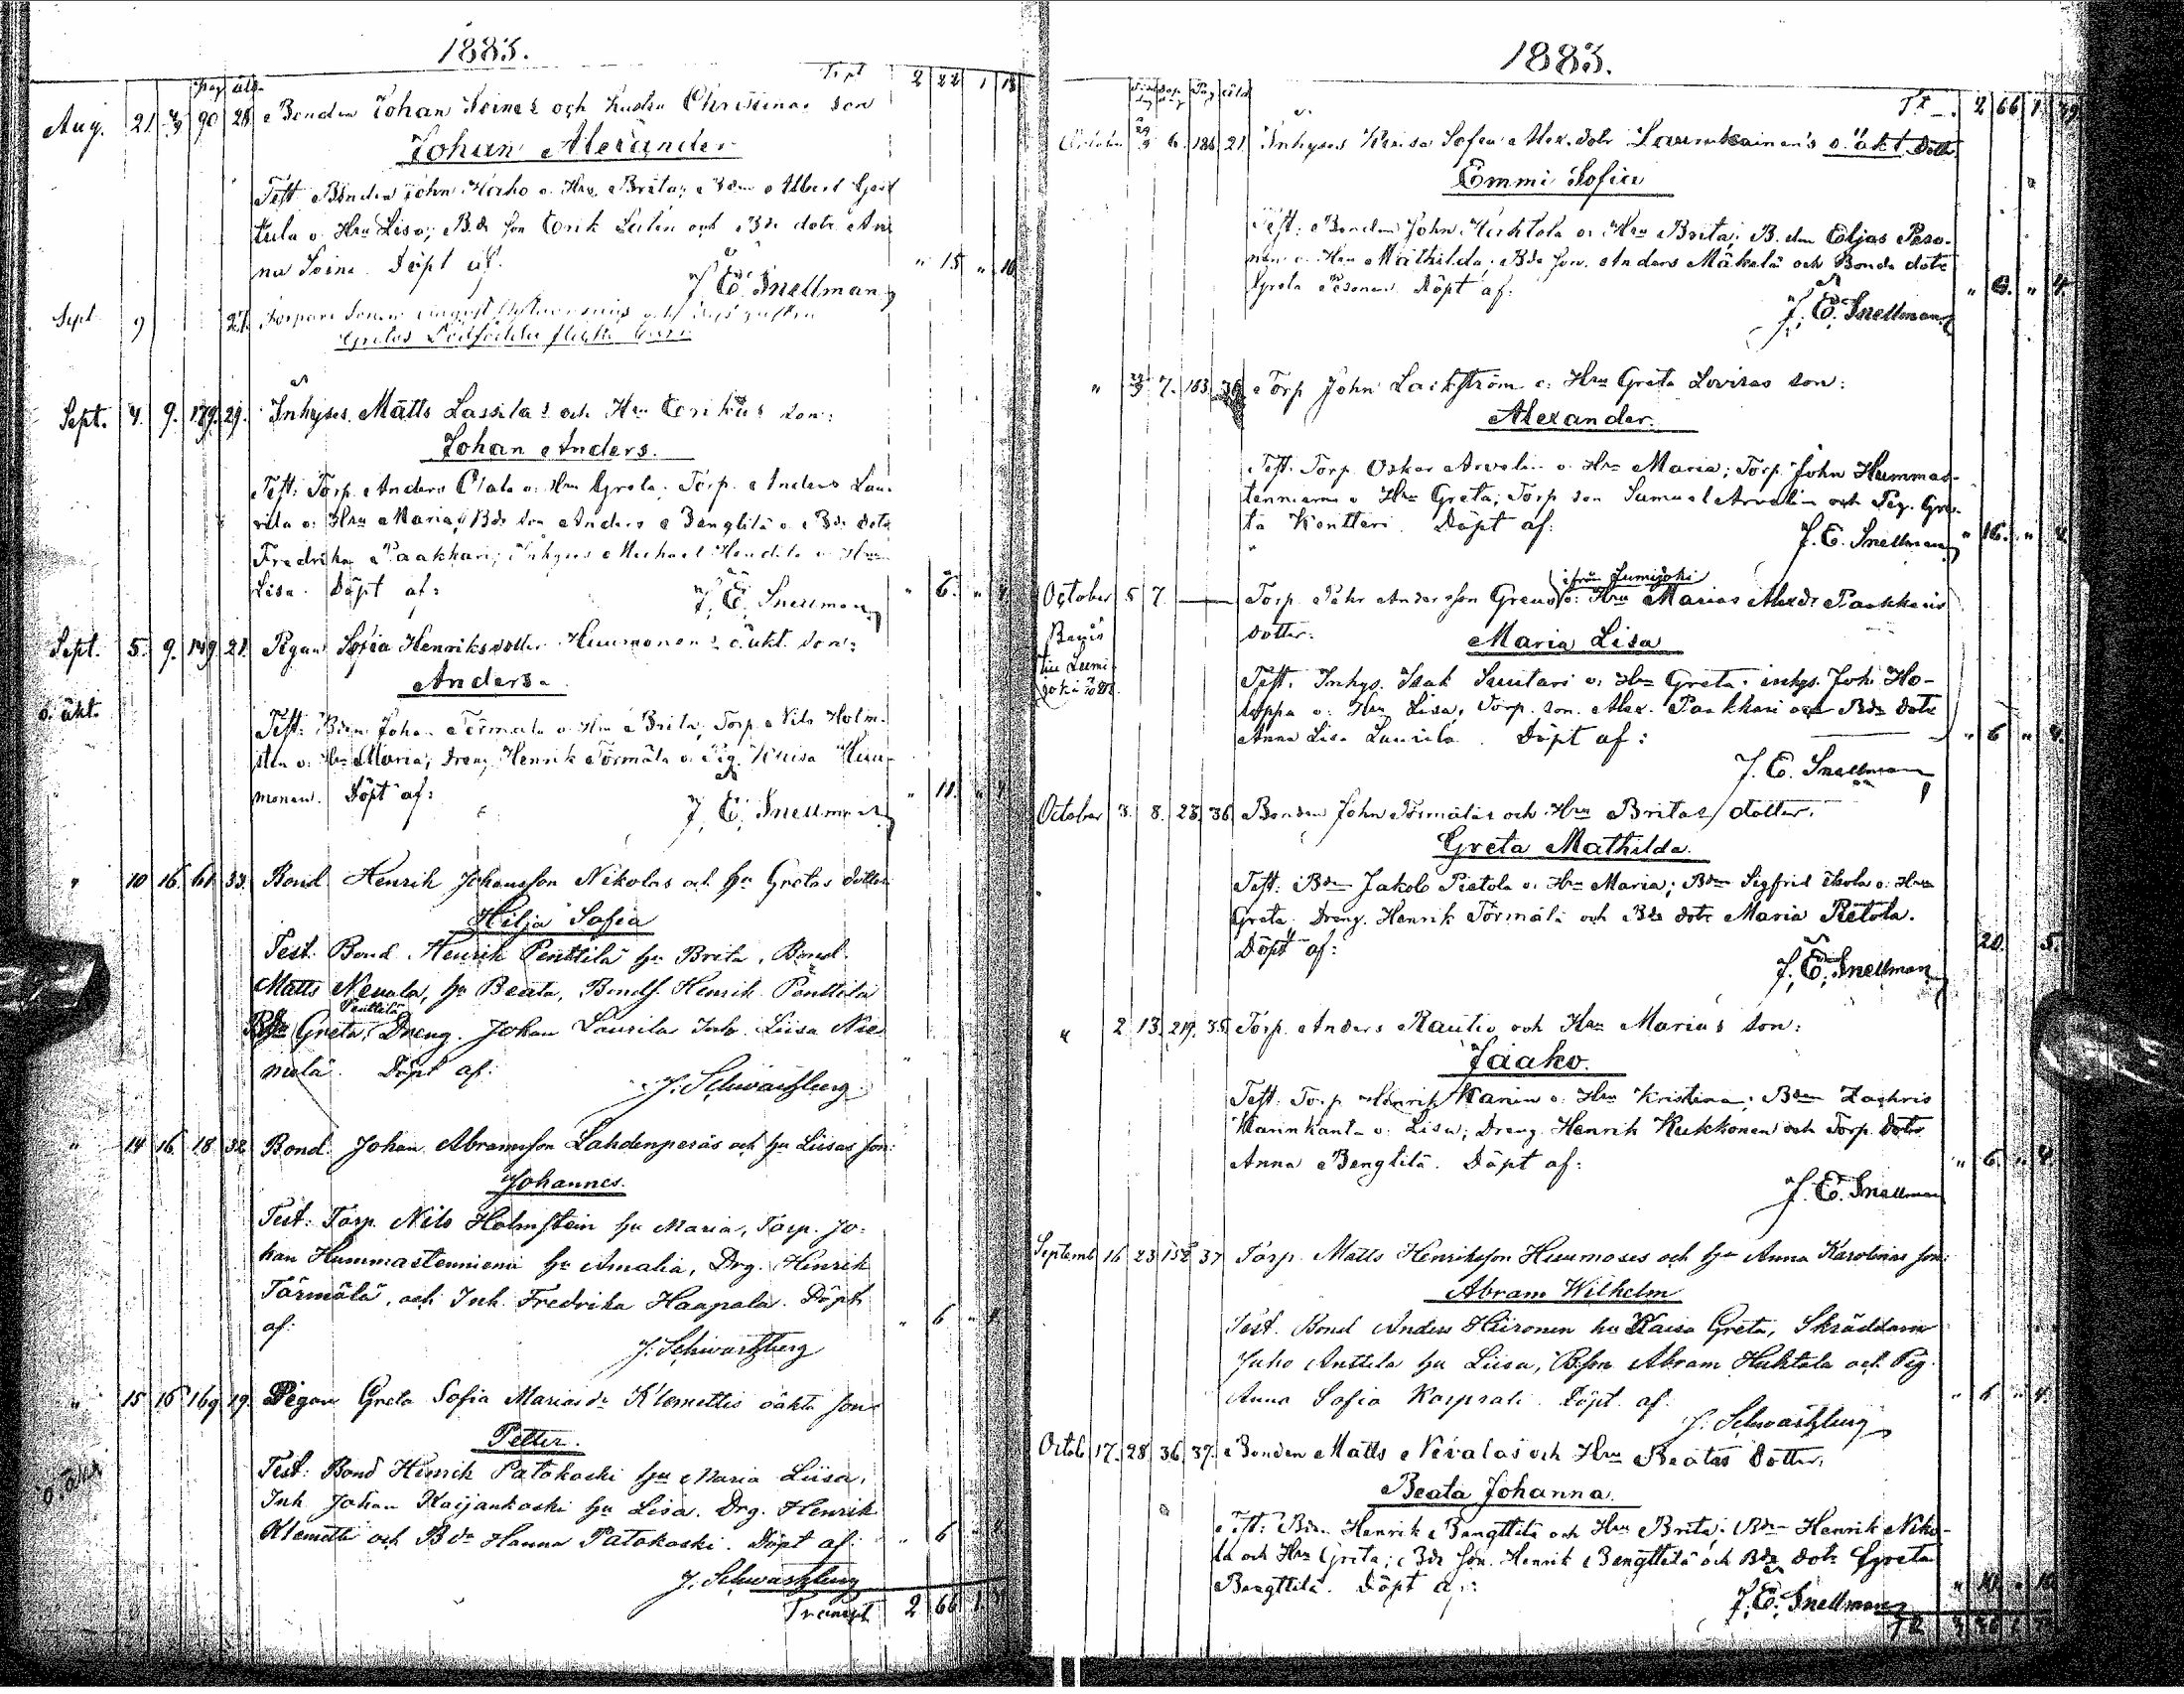 1883.
Aug. 21 90 28 Bonden Johan Soine's och hustru Christinas son
Johan Alexander
Test. Bonden John Karho o. Hru Brita; Bdn Albert
tula o. Hru Lisa; Bde son Erik och Bde dotr An
na Soine. Döpt af:
J. E. Snellman
" 15 " 10
Sept. 9 27.
Sept. 4. 9. 179. 29. Inhyses Matts Lassilas och Hru Erikas son:
Johan Anders.
Test: Torp. Anders o. Hru Greta; Torp. Anders Lau-
rila o. Hru Maria; Bde son Anders Bengtilä o. Bde dotr
Fredrika Paakkari; Inhyses Michael o. Hru
Lisa. Döpt af:
J. E. Snellman
" 6. " 4
Sept. 5. 9. 149. 21. Pigan Sofia Henriksdotter Huumonens oäkt. son:
o. äkt.
Anders.
Test: Bdn Johan Törmälä o. Hru Brita, Torp. Nils Holm-
sten o. Hru Maria; Dreng Henrik Törmälä o. Pig. Kaisa Huu-
monen. Döpt af:
J. E. Snellman
" 11. " 4
" 10 16. 61. 33. Bond Henrik Johansson Nikolas och hu Gretas dotter
Hilja Sofia
Test: Bond. Henrik Penttilä hu Brita, Bond.
Matts Nevala, hu Beata, Bonds. Henrik Penttilä
Penttilä
Greta, Dreng. Johan Laurila Inh. Liisa Nie
melä. Döpt af:
J. Schwartzberg
" 14 16. 18 32 Bond. Johan Abramsson Lahdenperäs och hu Liisas son:
Johannes.
Test: Torp. Nils Holmstein hu Maria, Torp. Jo-
han Hummastenniemi hu Amalia, Drg. Henrik
Törmälä, och Inh. Fredrika Haapala. Döpt
af:
J. Schwartzberg
" 6 " 4
" 15 16 169 19. Pigan Greta Sofia Mariasdr Klemettis oäkta son
Petter.
o. äkta
Test: Bond Henrik Patokoski hu Maria Liisa,
Inh Johan Kaijankoski hu Lisa. Drg. Henrik
Klemetti och Bdr Hanna Patokoski. Döpt af:
J. Schwartzberg
" 6 " 4
Transpt 2 66 1
1883.
Tr 2 66 1 39
October 29/9 6. 186 21. Inhyses Kaisa Sofia Alex. dotr Laurukainen's o. äkt. dotter
Emmi Sofia
Test: Bonden John Huhtala o. Hru Brita; B.den Elias Peso-
nen o. Hru Mathilda; Bde son. Anders Mäkelä och Bonde dotr
Greta Pesonen. Döpt af:
J. E. Snellman
" 6. " 4.
" 7. 183. 36 Torp John Lackström o: Hru Greta Lovisas son:
Alexander.
Test. Torp. Oskar Arvelin o. Hru Maria; Torp. John Hummas-
tenniemi o. Hru Greta; Torp son Samuel Arvelin och Pig. Gre-
ta Kenttäri. Döpt af:
J. E. Snellman
" 16. " 4.
ifrån Lumijoki
October 5 7. — Torp. Pehr Andersson Greus o: Hru Marias Alexdr Paakkaris
Bevis
till Lumi-
joki
dotter.
Maria Lisa
Test. Inhys. Isak Suutari o. Hru Greta. inhys. Joh. Ho-
loppa o. Hru Lisa, Torp. son. Alex. Paakkari och Bde dotr
Anna Lisa Laurila. Döpt af:
J. E. Snellman
" 6 " 4.
October 3. 8. 23. 36 Bonden John Törmäläs och Hru Britas dotter.
Greta Mathilda.
Test: Bdn Jakob Pietola o. Hru Maria; Bdn Sigfrid o. Hru
Greta. Dreng. Henrik Törmälä och Bde dotr Maria Pietola.
Döpt af:
J. E. Snellman
20. 5.
" 2 13. 219. 35 Torp. Anders Rautio och Hru Marias son:
Jaako.
Test. Torp Henrik Karin o. Hru Kristina; Bdn Zachris
Wannkant o. Lisa; Dreng. Henrik Kukkonen och Torp. dotr
Anna Bengtilä. Döpt af:
J. E. Snellman
" 6. " 4.
Septemb 16 23 152 37 Torp. Matts Henriksson Huumoses och hu Anna Karolinas son:
Abram Wilhelm
Test. Bond Anders Hiironen hu Kaisa Greta, Skräddarn
Juho Anttila hu Liisa, Bson Abram Huhtala och Pig.
Anna Sofia Korprali. Döpt. af.
J. Schwartzberg
" 6 " 4.
Octob 17. 28 36 37. Bonden Matts Nevalas och Hru Beatas dotter.
Beata Johanna.
Test: Bdn. Henrik Bengttilä och Hru Brita; Bdn Henrik Niko-
la och Hru Greta; Bde son. Henrik Bengttilä och Bde dotr Greta
Bengttilä. Döpt af:
J. E. Snellman